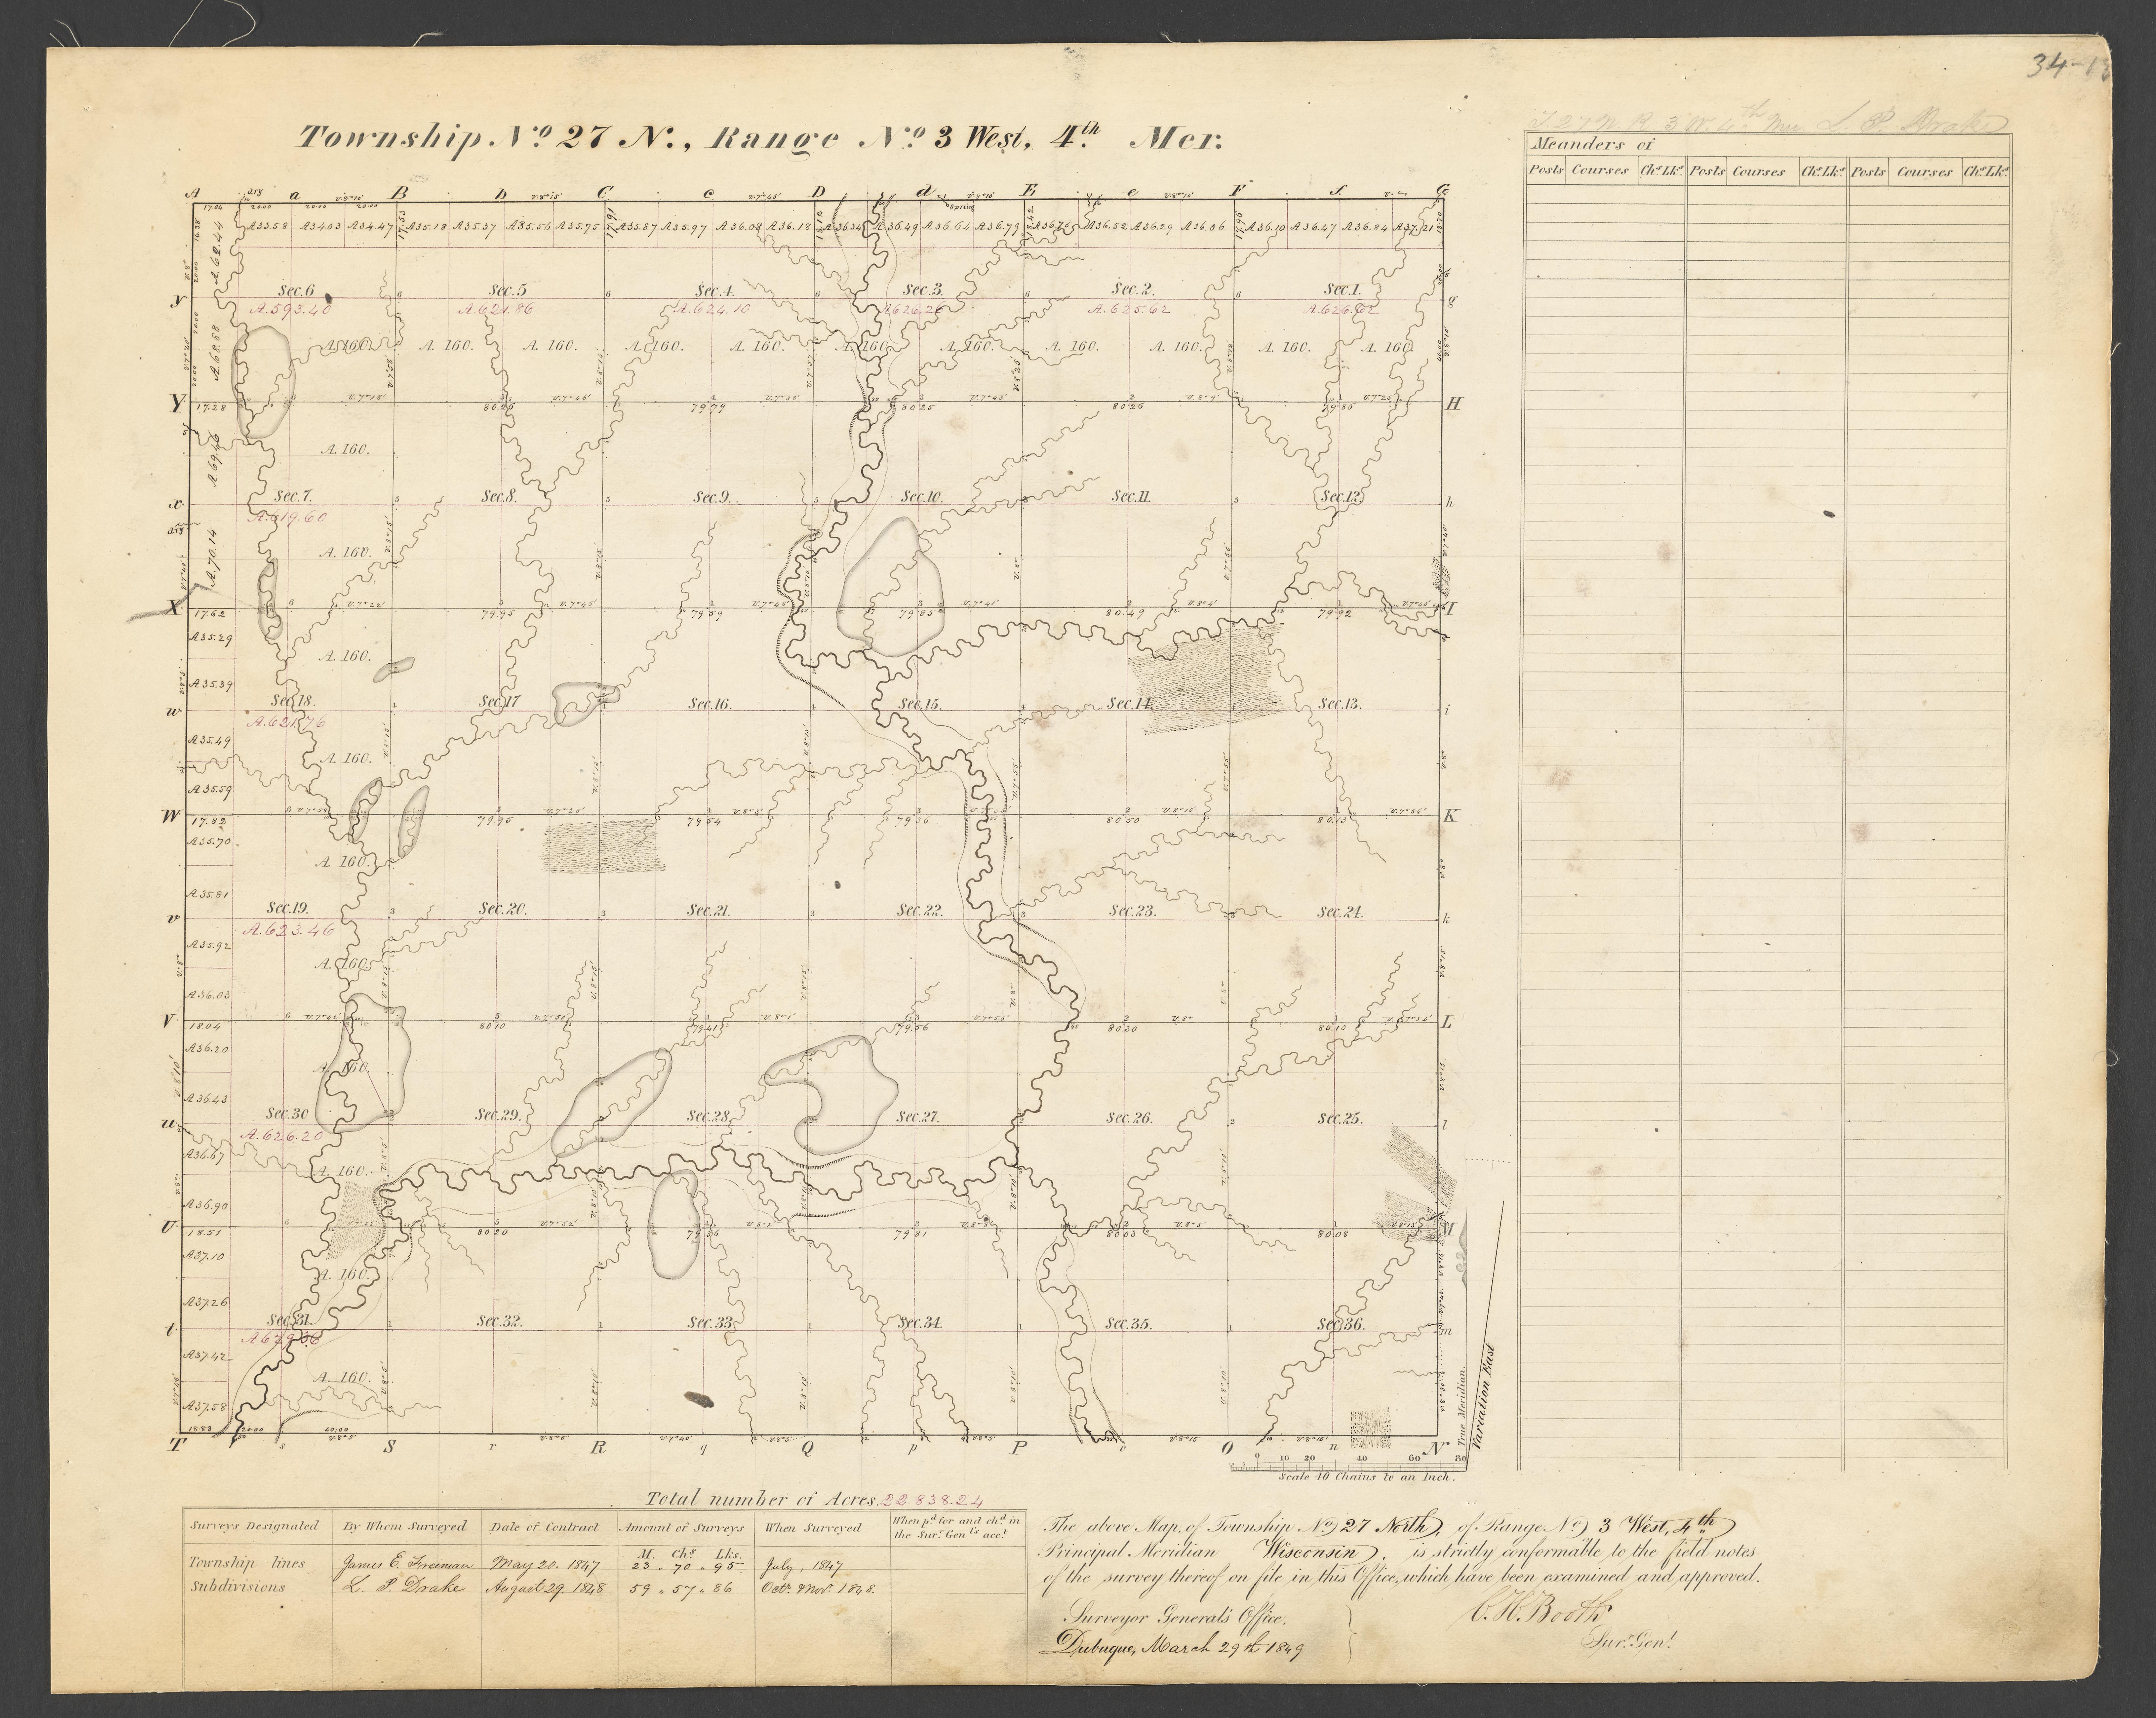 34-18
T 27 N R 3 W. 4th Mer. L. P. Drake
Township. No 27 N., Range No 3 West, 4th Mer.
Meanders of
Posts Courses Chs Lks Posts Courses Chs Lks Posts Courses Chs Lks
A a B b C c D d E e F f G
Spring
A33.58 A34.03 A34.47 A35.18 A35.37 A35.56 A35.75 A35.87 A35.97 A36.08 A36.18 A36.34 A36.49 A36.64 A36.79 A36.75 A36.52 A36.29 A36.06 A36.10 A36.47 A36.84 A37.21
A.62.44
Sec.6 Sec.5 Sec.4 Sec.3. Sec.2. Sec.1.
y g
A.593.40 A.621.86 A.624.10 A626.26 A.625.62 A.626.62
A.68.88
A.160. A. 160. A. 160. A. 160. A. 160. A.160. A. 160. A. 160. A. 160. A. 160. A. 160.
Y H
17.28 80.25 79.79 80.25 80.26 79.85
A.69.46
A. 160.
Sec.7. Sec.8. Sec.9. Sec.10. Sec.11. Sec.12.
x h
A.619.60
A. 160.
A.70.14
X I
17.62 79.95 79.59 79.85 80.49 79.92
A35.29
A. 160.
A35.39
Sec.18. Sec.17 Sec.16. Sec.15. Sec.14. Sec.13.
w i
A.621.76
A35.49
A. 160.
A35.59
W K
17.82 79.95 79.54 79.36 80.50 80.13
A35.70
A. 160.
A35.81
Sec.19. Sec.20. Sec.21. Sec.22. Sec.23. Sec.24.
v k
A.623.46
A35.92
A. 160.
A36.03
V L
18.04 80.10 79.41 79.56 80.30 80.10
A36.20
A. 160.
A36.43
Sec.30 Sec.29. Sec.28. Sec.27. Sec.26. Sec.25.
u l
A.626.20
A36.67
A. 160.
A36.90
U M
18.51 80.20 79.81 80.03 80.08
A37.10
A. 160.
A37.26
Sec.31. Sec.32. Sec.33. Sec.34. Sec.35. Sec.36.
t m
A37.42
A. 160.
A37.58
18.83
T s S r R q Q p P o O n N
True Meridian.
Variation East
0 10 20 40 60 80
Scale 40 Chains to an Inch.
Total number of Acres. 22.838.24
Surveys Designated By Whom Surveyed Date of Contract Amount of Surveys When Surveyed When pd for and chd in the Surr Genls acct
M. Chs Lks.
Township lines James E. Freeman May 20. 1847 23 . 70 . 95 July, 1847
Subdivisions L. P. Drake August 29. 1848 59 . 57 . 86 Octr &Nov. 1848.
The above Map, of Township No 27 North, of Range No 3 West, 4th
Principal Meridian Wisconsin, is strictly conformable to the field notes
of the survey thereof on file in this Office, which have been examined and approved.
Surveyor General's Office,
Dubuque, March 29th 1849
C. H. Booth
Surr Genl